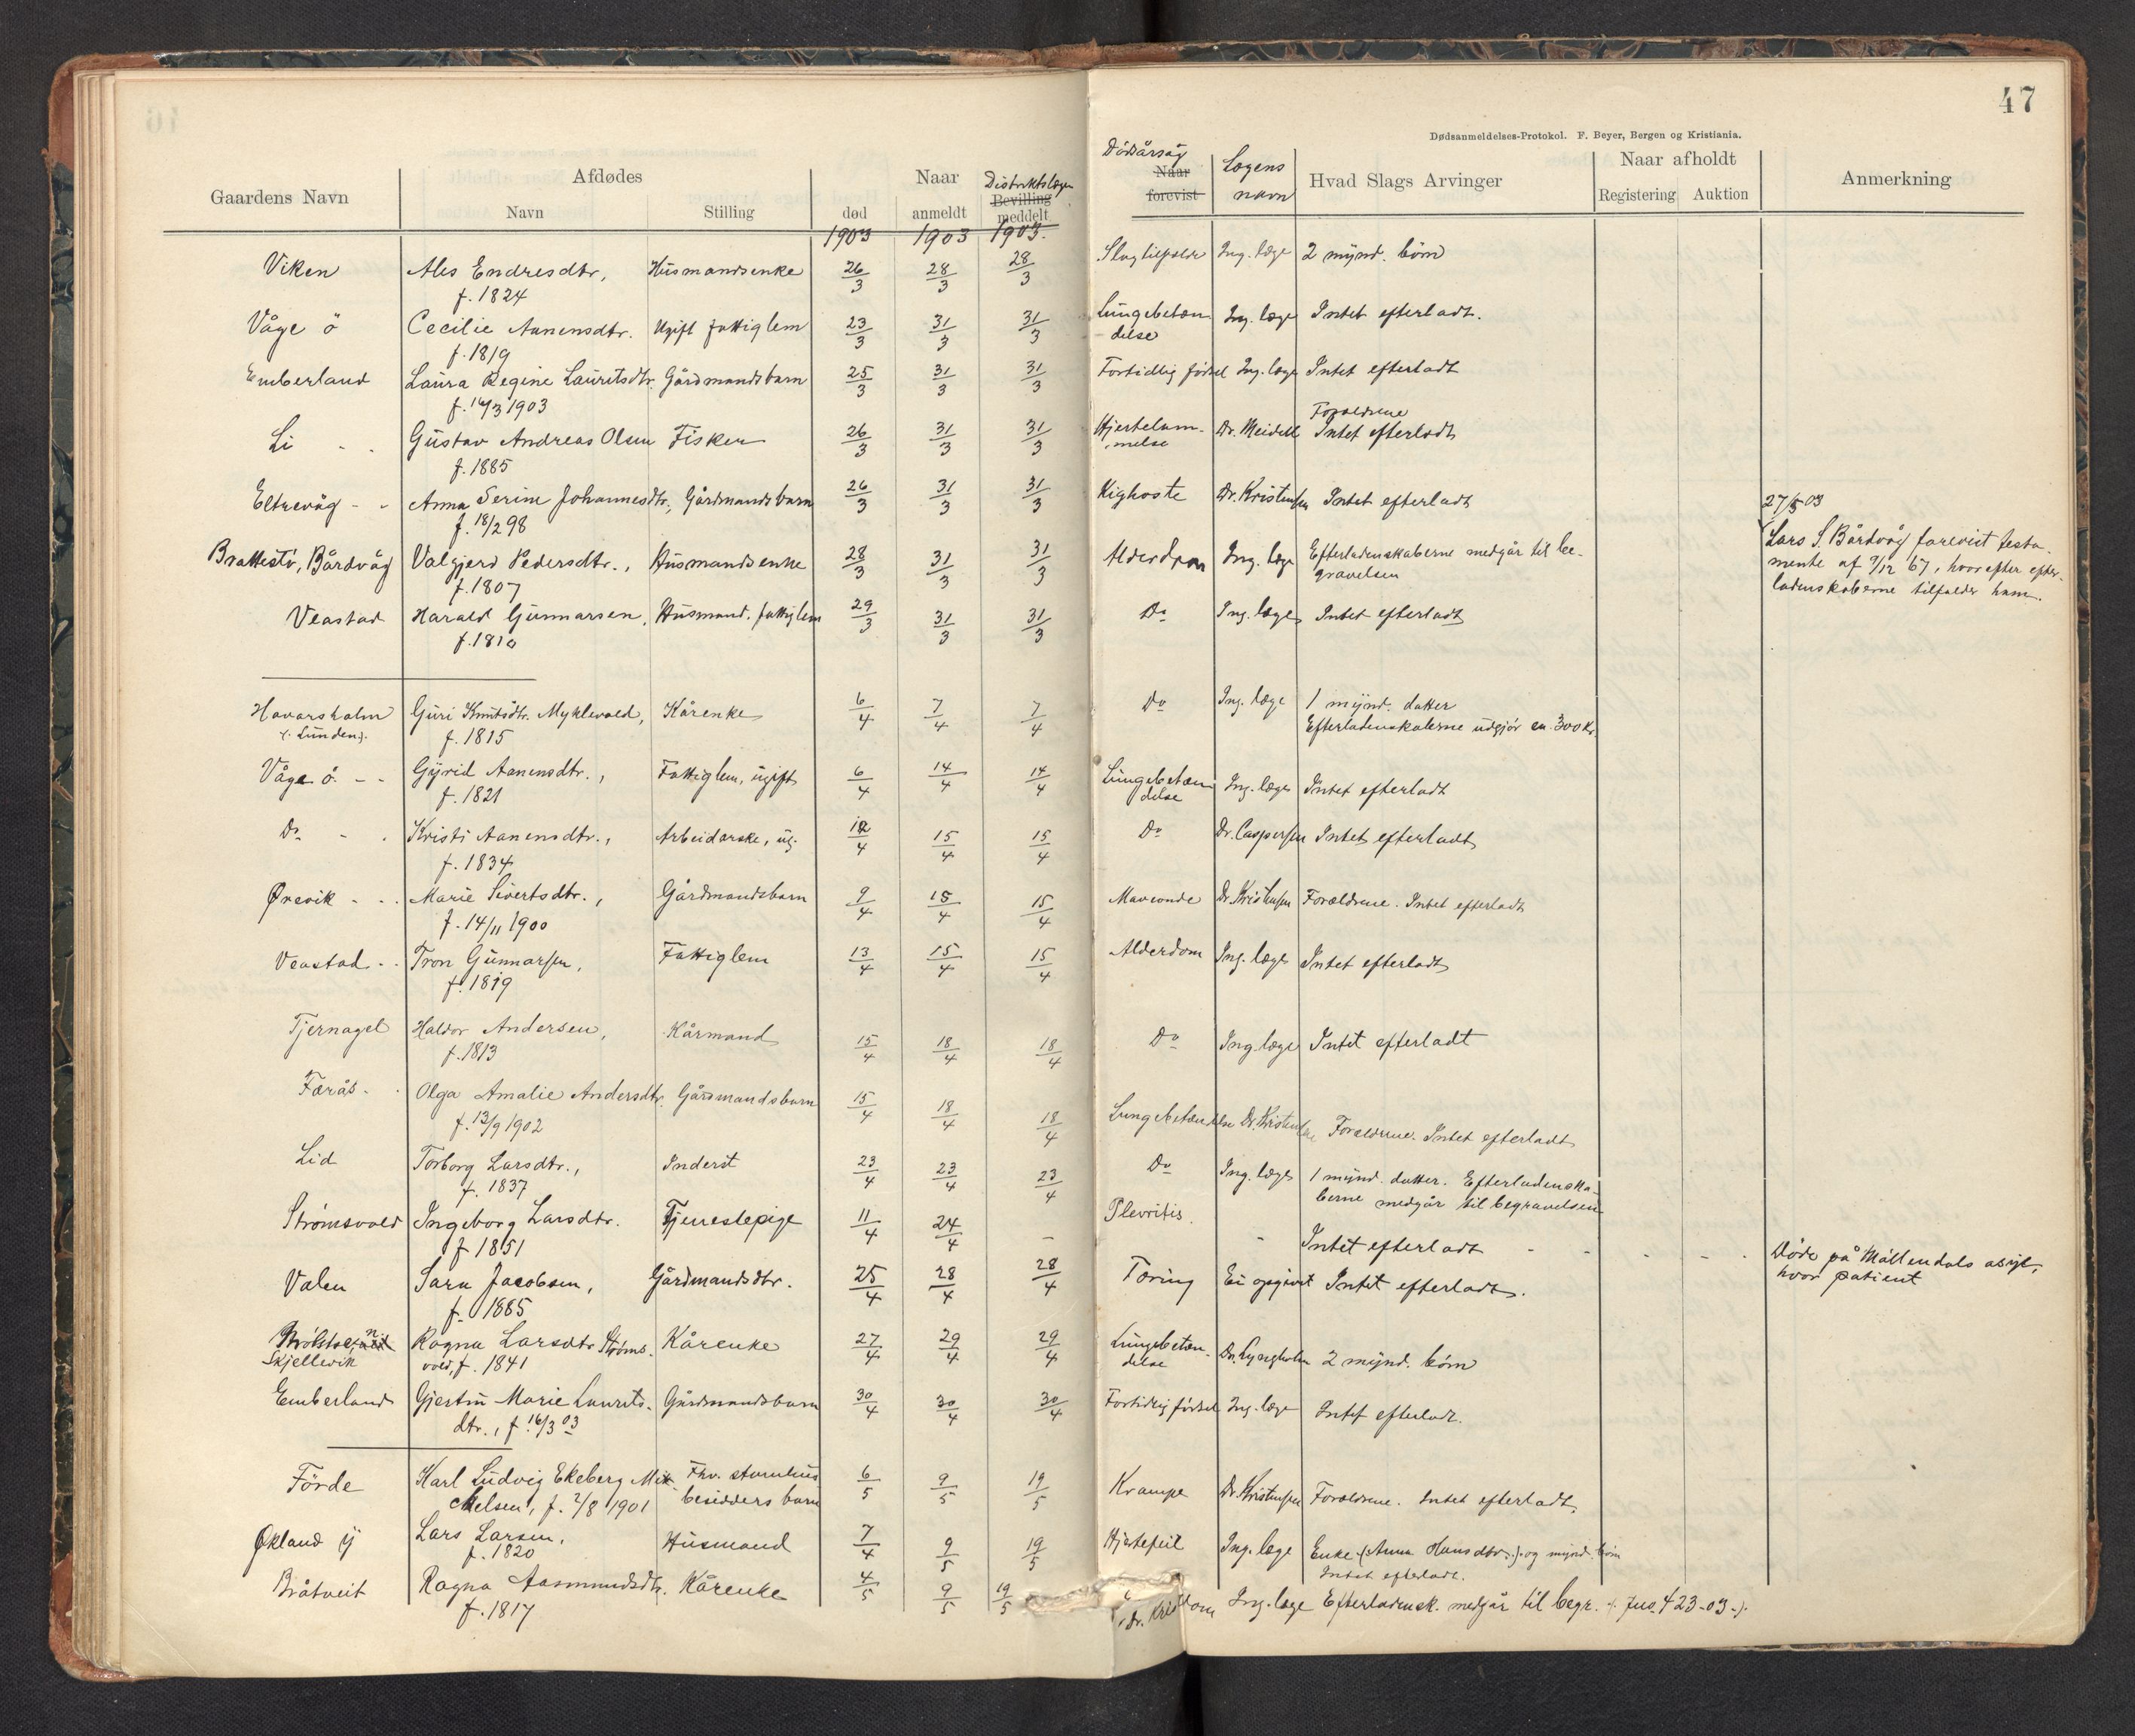 47
Dødsanmeldelses-Protokol. F. Beyer, Bergen og Kristiania.
Gaardens Navn Afdødes Naar Distriktslægen Dödsårsag Lægens navn Hvad Slags Arvinger Naar afholdt Anmerkning
Navn Stilling død anmeldt Bevilling meddelt Naar forevist Registering Auktion
1903 1903 1903.
Viken Ales Endresdtr, Husmandsenke 26/3 28/3 28/3 Slagtilfælde Ing. læge 2 mynd. börn
f. 1824
Våge ö Cecilie Aanensdtr. Ugift fattiglem 23/3 31/3 31/3 Lungebetæn Ing. læge Intet efterladt.
f. 1819 -delse
Emberland Laura Regine Lauritsdtr. Gårdmandsbarn 25/3 31/3 31/3 Fortidlig födsel Ing. læge Intet efterladt
f. 16/3 1903
Forældrene
Li - - Gustav Andreas Olsen Fisker 26/3 31/3 31/3 Hjertelam- Dr. Meidell Intet efterladt
f. 1885 melse
Eltrevåg - - Anna Serine Johannesdtr., Gårdmandsbarn 26/3 31/3 31/3 Kighoste Dr. Kristensen Intet efterladt
f. 18/2 98
27/5 03
Brattestö, Bårdvåg Valgjerd Pedersdtr., Husmandsenke 28/3 31/3 31/3 Alderdom Ing. læge Efterladenskaberne medgår til be- Lars S. Bårdvåg forevist testa-
f. 1807 gravelsen mente af 9/12 67, hvorefter efter-
ladenskaberne tilfalder ham.
Veastad Harald Gunnarsen, Husmand. fattiglem 29/3 31/3 31/3 Do Ing. læge Intet efterladt
f. 1810
Havarsholm Guri Knutsdtr. Myklevold, Kårenke 6/4 7/4 7/4 Do Ing. læge 1 mynd. datter
(: Lunden :) f. 1815 Efterladenskaberne udgjör ca. 300 Kr.
Våge ö - - Gyrid Aanensdtr., Fattiglem, ugift 6/4 14/4 14/4 Lungebetæn Ing. læge Intet efterladt
f. 1821 delse
Do - - Kristi Aanensdtr., Arbeiderske, ug. 12/4 15/4 15/4 Do Dr. Caspersen Intet efterladt
f. 1834
Ørevik - - Marie Sivertsdtr., Gårdmandsbarn 9/4 15/4 15/4 Maveonde Dr. Kristensen Forældrene. Intet efterladt
f. 14/11 1900
Veastad - - Tron Gunnarsen, Fattiglem 13/4 15/4 15/4 Alderdom Ing. læge Intet efterladt
f. 1819
Tjernagel Haldor Andersen, Kårmand 15/4 18/4 18/4 Do Ing. læge Intet efterladt
f. 1813
Færås - - Olga Amalie Andersdtr. Gårdmandsbarn 15/4 18/4 18/4 Lungebetændelse Dr. Kristensen Forældrene. Intet efterladt
f. 13/9 1902
Lid Torborg Larsdtr., Inderst 23/4 23/4 23/4 Do Ing. læge 1 mynd. datter. Efterladenska-
f. 1837 berne medgår til begravelsen
Strömsvold Ingeborg Larsdtr. Tjenestepige 11/4 24/4 - Plevritis. - Intet efterladt - - - - - Döde på Möllendals asyl,
f. 1851 hvor patient
Valen Sara Jacobsen, Gårdmandsdtr. 25/4 28/4 28/4 Tæring Ei opgivet Intet efterladt.
f. 1885
Skjellevik Ragna Larsdtr Ströms- Kårenke 27/4 29/4 29/4 Lungebetæn- Dr. Lyngholm 2 mynd. börn
vold, f. 1841 delse
Emberland Gjertru Marie Laurits- Gårdmandsbarn 30/4 30/4 30/4 Fortidlig födsel Ing. læge Intet efterladt.
dtr., f. 16/3 03
Förde Karl Ludvig Ekeberg Mik- Fhv. stuehus 6/5 9/5 19/5 Krampe Dr. Kristensen Forældrene. Intet efterladt.
kelsen, f. 2/8 1901 besidders barn
Økland y Lars Larsen, Husmand 7/4 9/5 19/5 Hjertefeil Ing. læge Enke (Anna Hansdtr.:) og mynd. börn
f. 1820 Intet efterladt.
Bråtveit Ragna Aasmundsdtr. Kårenke 4/5 9/5 19/5 Ing. læge Efterladensk. medgår til begr. (: Jus. 423-03 :).
f. 1817